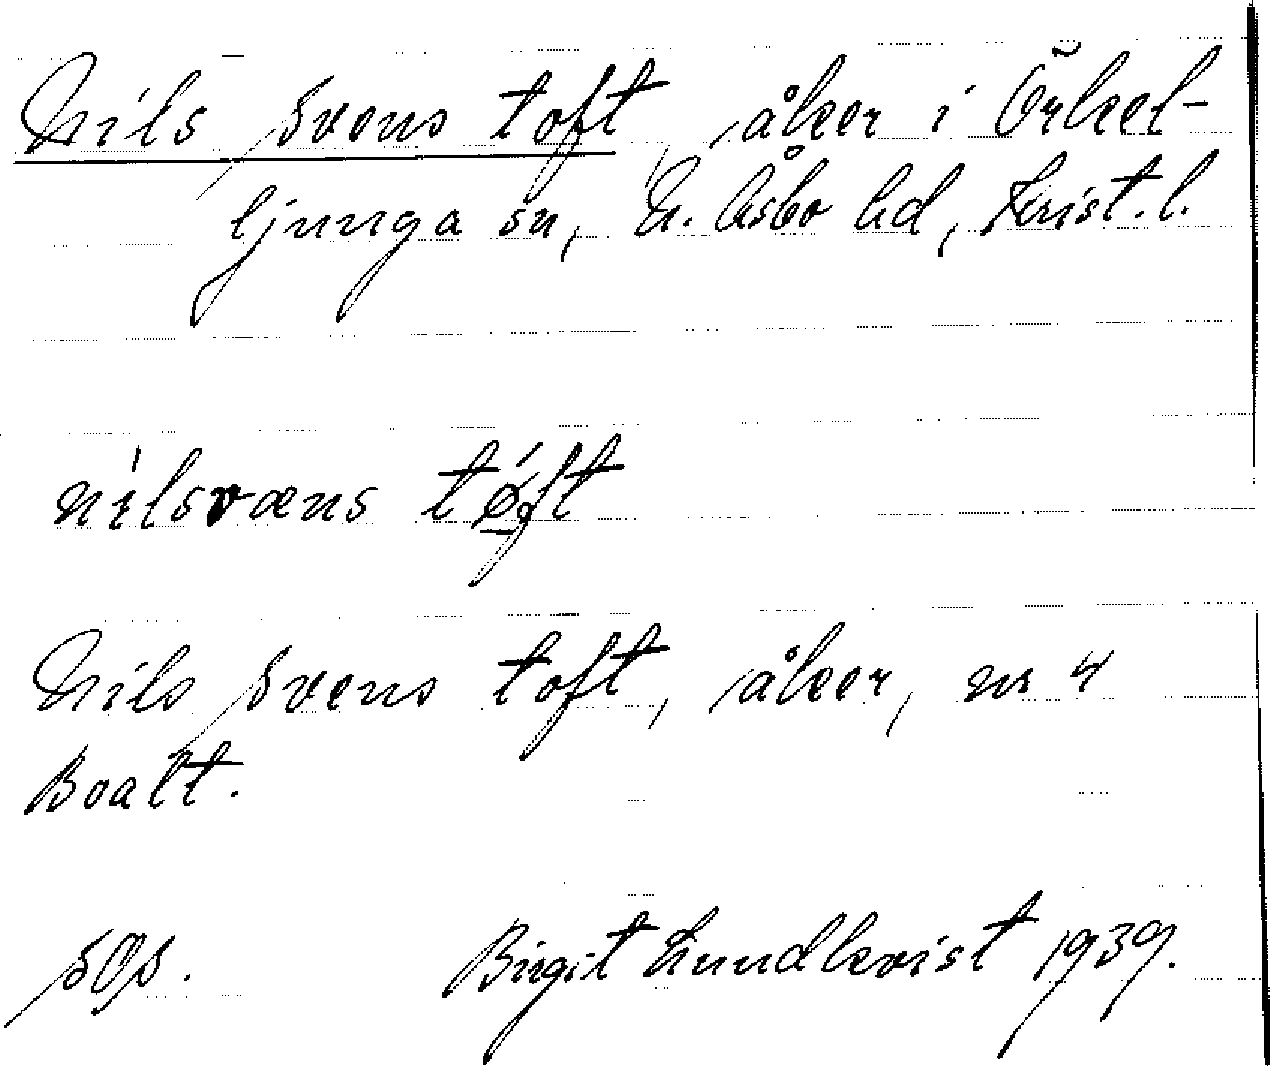 Nils Svens toft, åker i Örkel-
ljunga sn, N. Åsbo hd, Krist. l.
nílsvæns tǿft
Nils Svens toft, åker, nr 4
Boalt.
sps. Birgit Lundkvist 1939.